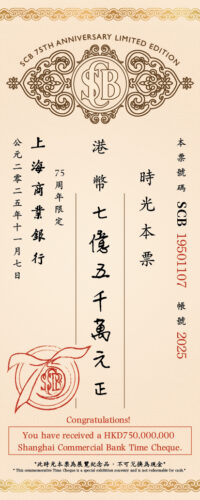 SCB 75TH ANNIVERSARY LIMITED EDITION
SCB
本票號碼 SCB 19501107 帳號 2025
時光本票
港幣七億五千萬元正
75周年限定
上海商業銀行
公元二零二五年十一月七日
SCB
Congratulations!
You have received a HKD750,000,000
Shanghai Commercial Bank Time Cheque.
*此時光本票為展覽紀念品，不可兌換為現金*
*This commemorative Time Cheque is a special exhibition souvenir and is not redeemable for cash.*